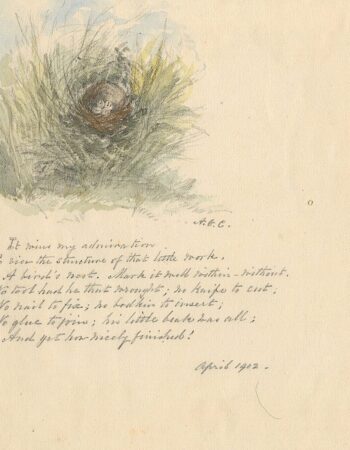 A.E.C.
It wins my admiration
To view the structure of that little work,
A bird's nest. Mark it well within - without.
No tool had he that wrought; no knife to cut,
No nail to fix; no bodkin to insert;
No glue to join; his little beak was all;
And yet how nicely finished!
April 1902.